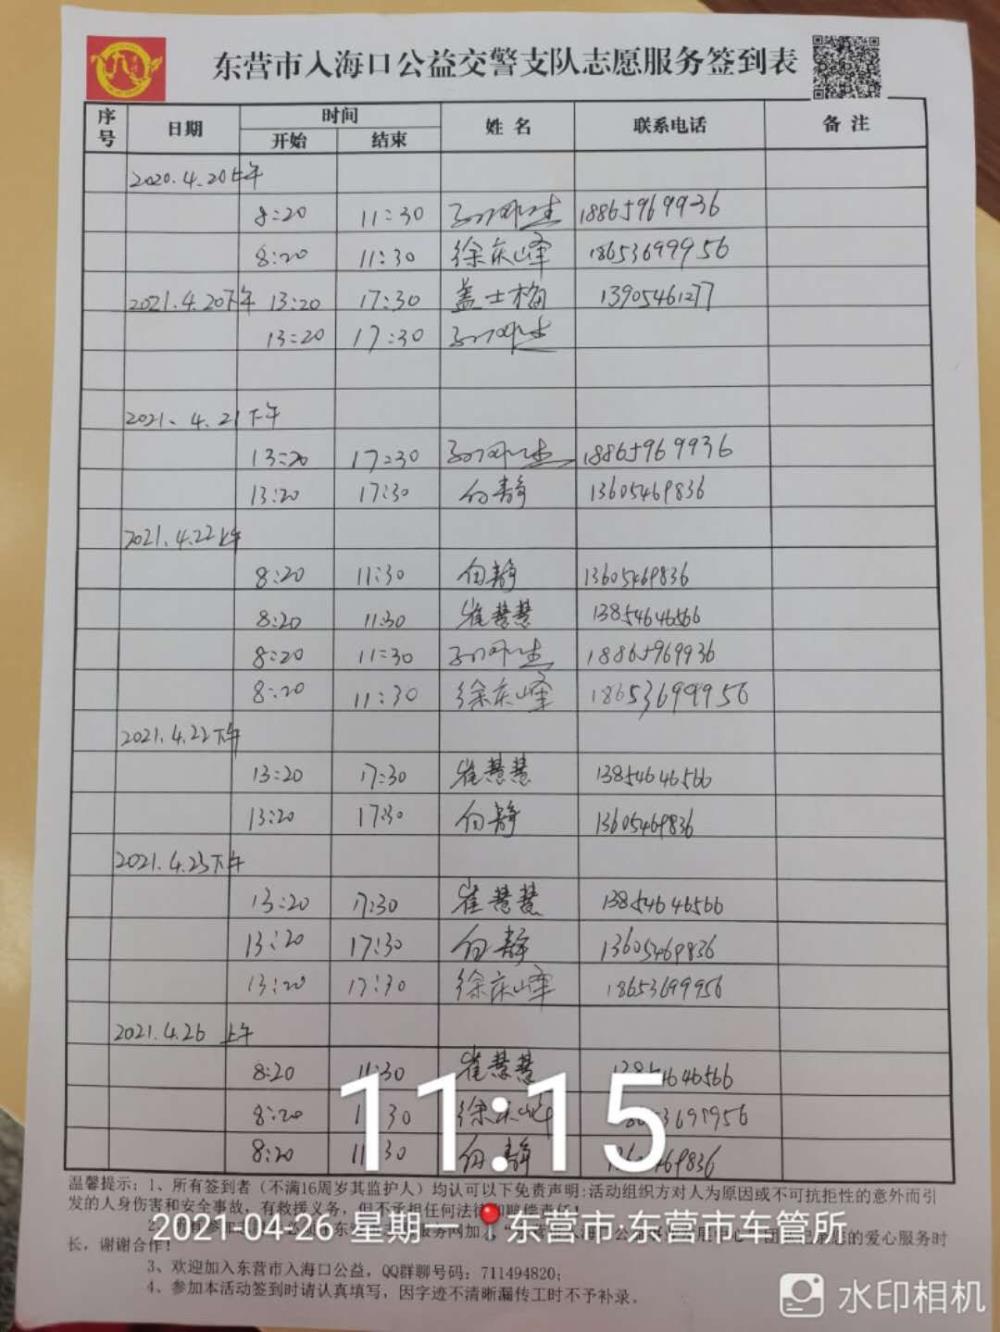 东营市入海口公益交警支队志愿服务签到表
序号 日期 时间 姓名 联系电话 备注
开始 结束
2020.4.20上午
8:20 11:30 18865969936
8:20 11:30 徐庆峰 18653699956
2021.4.20下午 13:20 17:30 盖士梅 13905461277
13:20 17:30
2021.4.21下午
13:20 17:30 18865969936
13:20 17:30 白静 13605469836
2021.4.22上午
8:20 11:30 白静 13605469836
8:20 11:30 崔慧慧 13854646566
8:20 11:30 18865969936
8:20 11:30 徐庆峰 18653699956
2021.4.22下午
13:20 17:30 崔慧慧 13854646566
13:20 17:30 白静 13605469836
2021.4.25下午
13:20 17:30 崔慧慧 13854646566
13:20 17:30 白静 13605469836
13:20 17:30 徐庆峰 18653699956
2021.4.26 上午
8:20 11:30 崔慧慧 13854646566
8:20 11:30 徐庆峰 18653699956
8:20 11:30 白静 13605469836
11:15
温馨提示:1、所有签到者(不满16周岁其监护人)均认可以下免责声明:活动组织方对人为原因或不可抗拒性的意外而引
发的人身伤害和安全事故,有救援义务,但不承担任何法律和赔偿责任!
2021-04-26 星期一 东营市·东营市车管所
的爱心服务时
长,谢谢合作!
3、欢迎加入东营市入海口公益,QQ群聊号码:711494820;
4、参加本活动签到时请认真填写,因字迹不清晰漏传工时不予补录。
水印相机